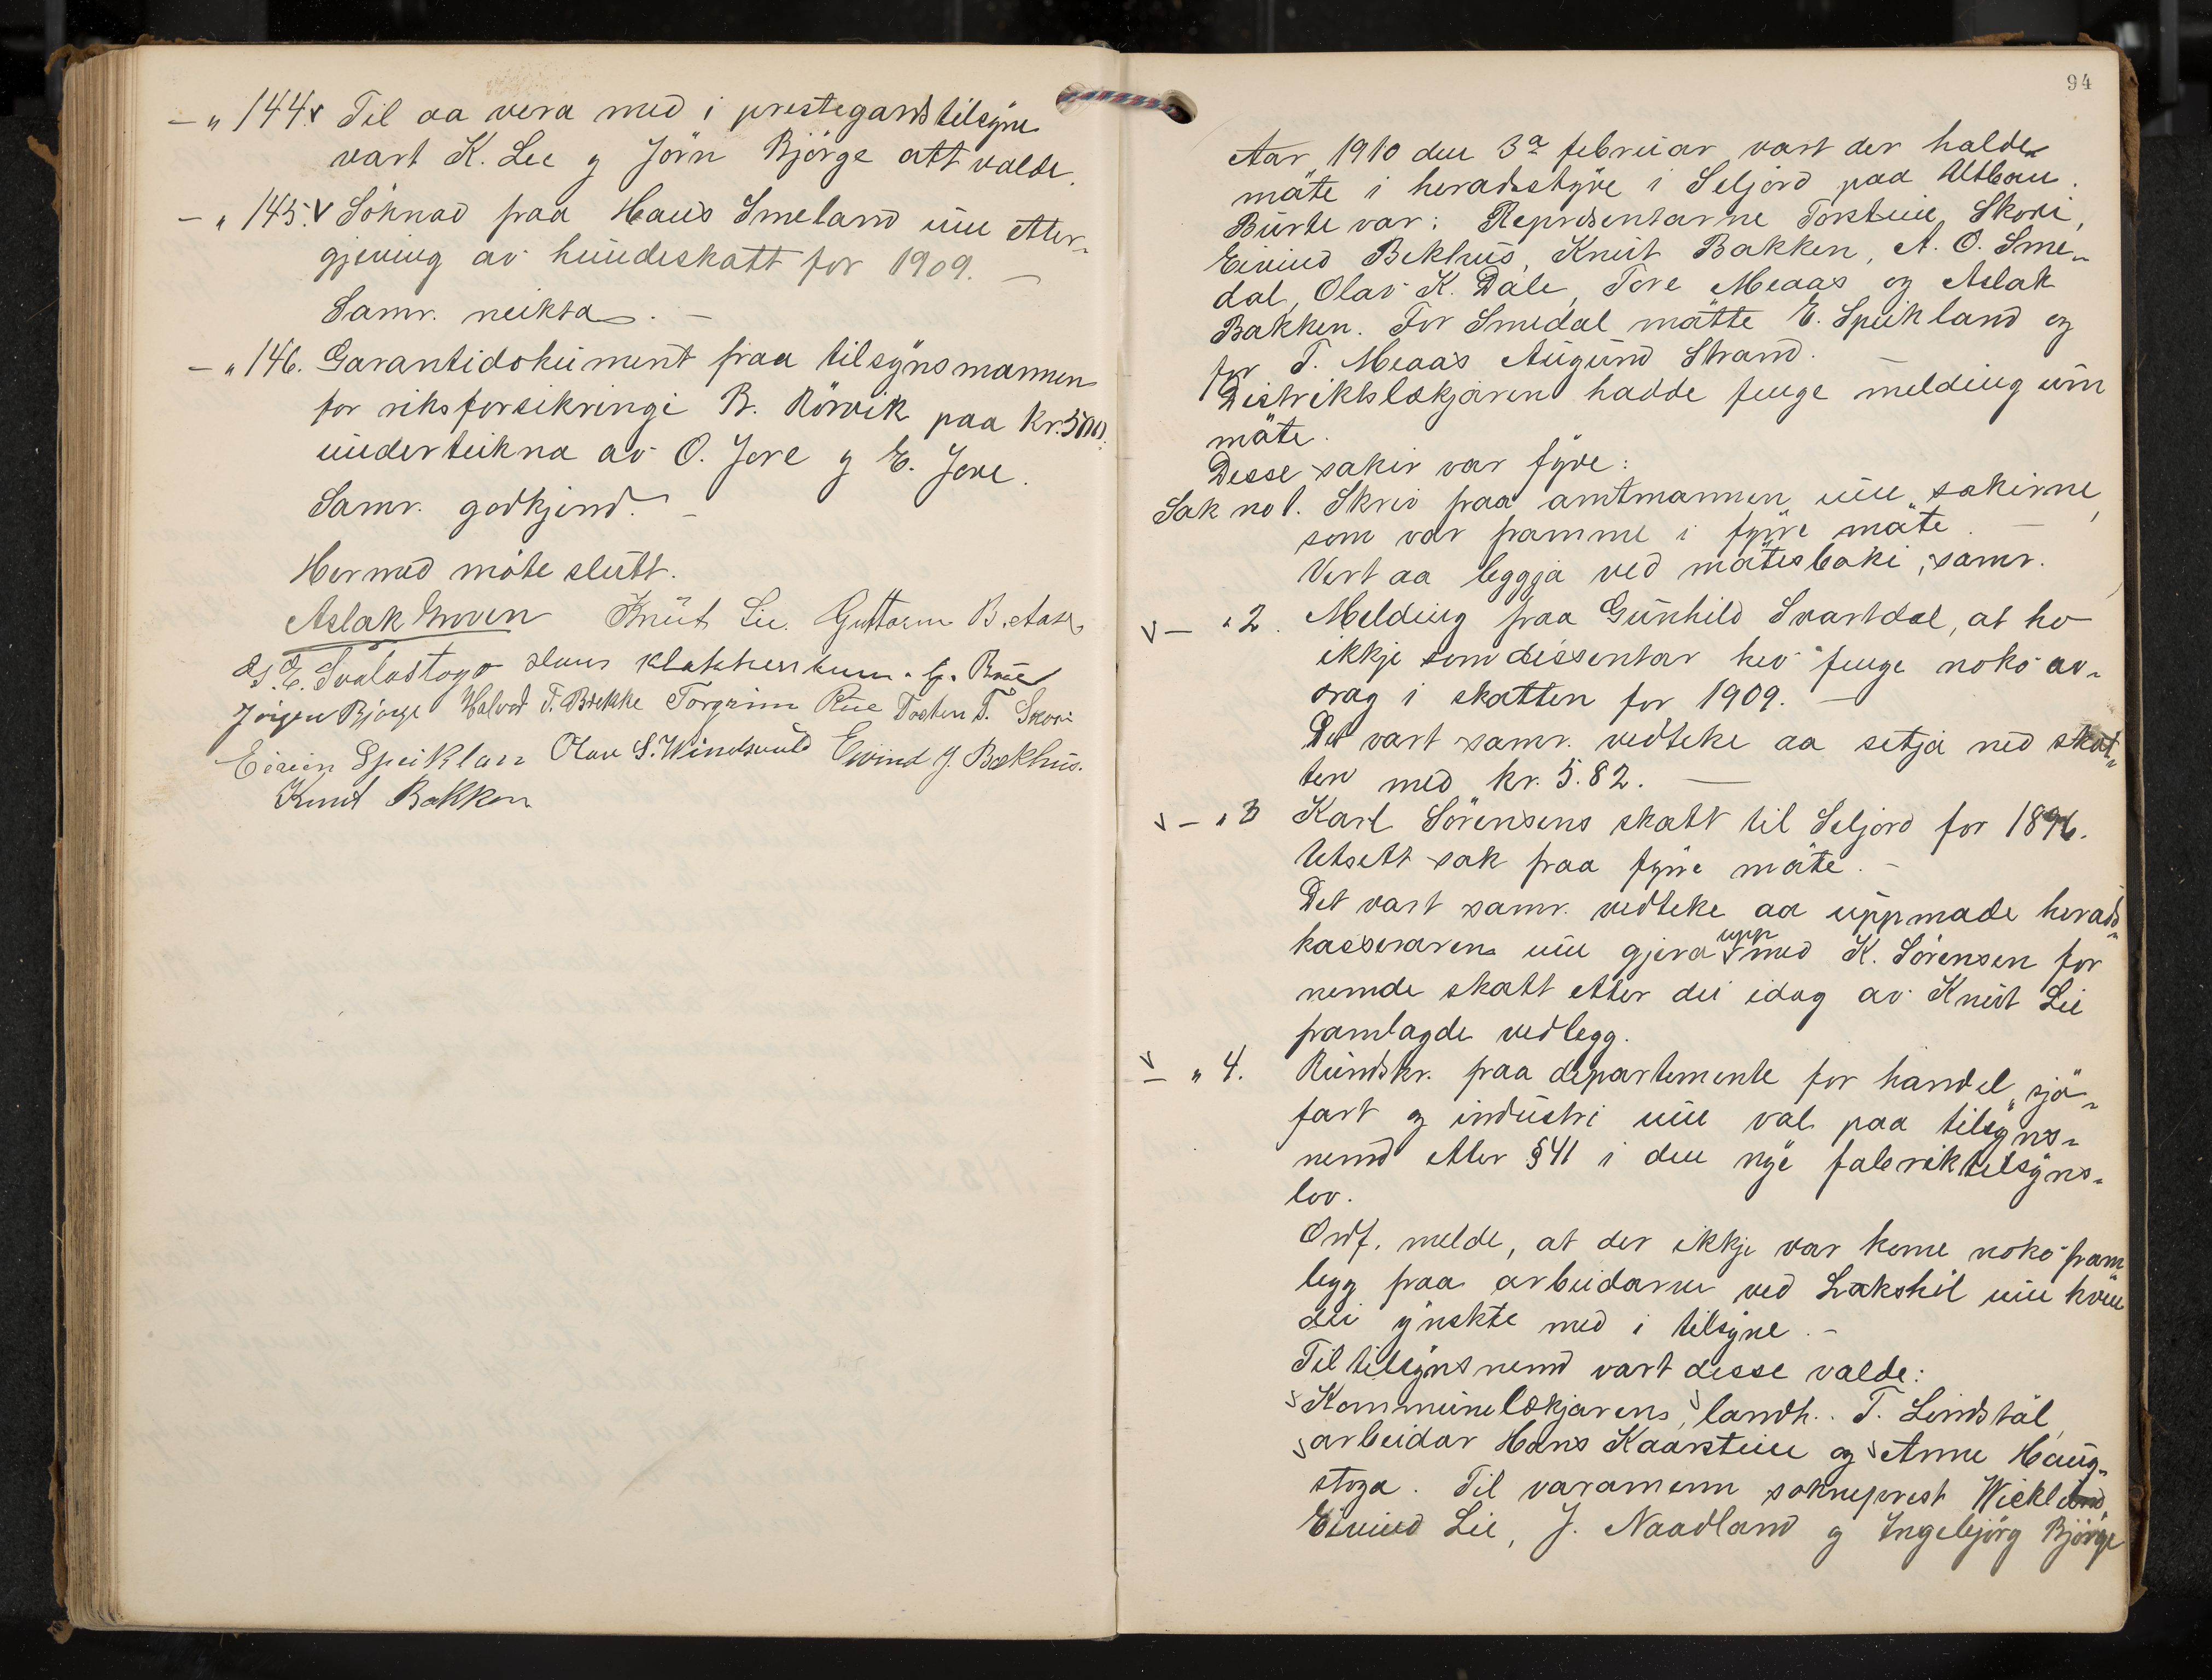 — „ 144. v Til aa vera med i prestegardstilsyne
vart K. Lee og Jörn Björge att valde.
— „ 145. v Söknad fraa Hans Smeland um etter-
gjeving av hundeskatt for 1909. —
Samr. neikta. —
— „ 146. Garantidokument fraa tilsynsmannen
for riksforsikringi B. Rörvik paa kr. 500.
underteikna av O. Jore og E. Jore.
Samr. godkjend. —
Hermed möte slutt.
Aslak Groven Knut Lie. Guttorm B. Aase
G. E. Svalastoga Hans Klokkerstuen. G. Rue
Jörgen Bjørge Halvord T. Brekke Torgrim Rue Torsten T. Skori
Eivin Speiklan Olav S. Windsvald Eivind J. Bækhus.
Knut Bakken
94
Aar 1910 den 3a februar vart der halde
möte i heradsstyre i Seljord paa Utbøen.
Burte var: Repræsentarne Torstein Skori,
Eivind Bekhus, Knut Bakken, A. O. Sme-
dal, Olav K. Dale, Tore Meaas og Aslak
Bakken. For Smedal mötte E. Speikland og
for T. Meaas Augund Strand. —
Distriktslækjaren hadde fenge melding um
möte.
Desse sakir var fyre:
Sak no 1. Skriv fraa amtmannen um sakirne,
som var framme i fyrre möte. —
Vert aa leggja ved mötesboki, samr.
v — „ 2. Melding fraa Gunhild Svartdal, at ho
ikkje som dissentar hev fenge noko av-
drag i skatten for 1909. —
Det vart samr. vedteke aa setja ned skat-
ten med kr. 5.82. —
v — „ 3 Karl Sörensens skatt til Seljord for 1896.
Utsett sak fraa fyrre möte. —
Det vart samr. vedteke aa uppmode herads-
kasseraren um gjera upp med K. Sörensen for
nemde skatt etter dei idag av Knut Lie
framlagde vedlegg.
v — „ 4. Rundskr. fraa departemente for handel, sjö-
fart og industri um val paa tilsyns-
nemd etter § 41 i den nye fabriktilsyns-
lov.
Ordf. melde, at der ikkje var kome noko fram
legg fraa arbeidarne ved Lakshöl um kven
dei ynskte med i tilsyne. —
Til tilsynsnemd vart desse valde:
Kommunelækjarens, landh. T. Lindstöl,
arbeidar Hans Kaarstein og Anne Haug-
stoga. Til varamenn sokneprest Wicklund,
Eivind Lie, J. Naadland og Ingebjörg Björge